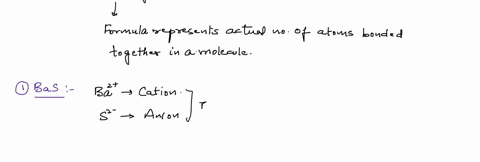 ↓
Formula represents actual no. of atoms bonded
together in a molecule.
① BaS :- Ba²⁺ → Cation
S²⁻ → Anion